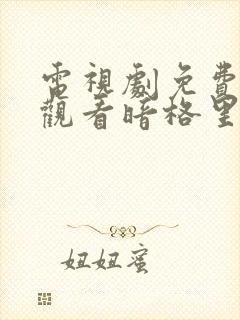 電視劇免費
觀看暗格里
妞妞蜜